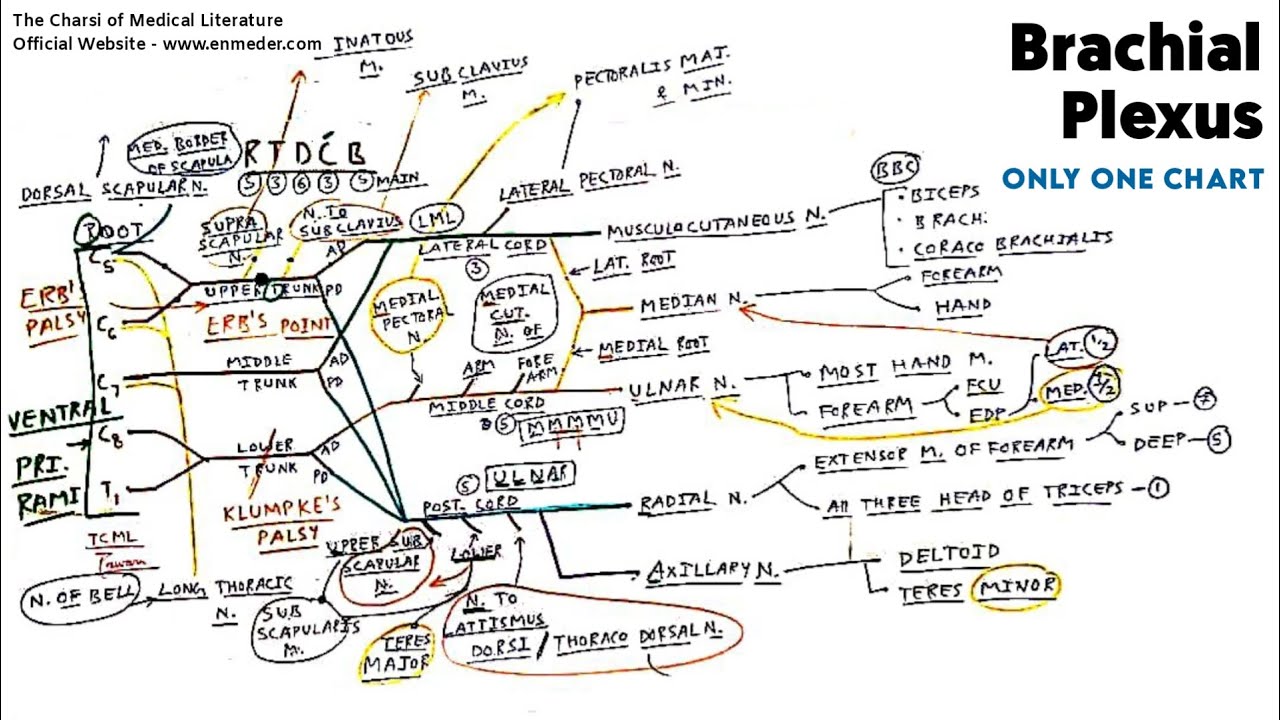 The Charsi of Medical Literature
Official Website - www.enmeder.com
Brachial
Plexus
ONLY ONE CHART
INATOUS
M.
SUBCLAVIUS
M.
PECTORALIS MAJ.
& MIN.
MED. BORDER
OF SCAPULA
R T D C B
5 3 6 3 5 MAIN
DORSAL SCAPULAR N.
LATERAL PECTORAL N.
ROOT
SUPRA
SCAPULAR
N.
N. TO
SUBCLAVIUS
LML
AD
LATERAL CORD
3
MUSCULOCUTANEOUS N.
BBC
BICEPS
BRACH.
CORACO BRACHIALIS
C5
ERB'
PALSY
UPPER TRUNK
PD
ERB'S POINT
C6
MEDIAL
PECTORAL
N
MEDIAL
CUT.
N. OF
LAT. ROOT
MEDIAN N.
FOREARM
HAND
MEDIAL ROOT
MIDDLE
TRUNK
AD
PD
C7
ARM
FORE
ARM
MIDDLE CORD
5
MMMMU
ULNAR N.
MOST HAND M.
FOREARM
FCU
EDP
LAT. 1/2
MED. 1/2
VENTRAL
PRI.
RAMI
C8
T1
LOWER
TRUNK
AD
PD
KLUMPKE'S
PALSY
5
ULNAR
POST. CORD
RADIAL N.
EXTENSOR M. OF FOREARM
SUP - 7
DEEP - 5
All THREE HEAD OF TRICEPS - 1
TCML
N. OF BELL
LONG THORACIC
N.
UPPER SUB
SCAPULAR
N.
LOWER
SUB
SCAPULARIS
M.
TERES
MAJOR
N. TO
LATTISMUS
DORSI / THORACO DORSAL N.
AXILLARY N.
DELTOID
TERES MINOR